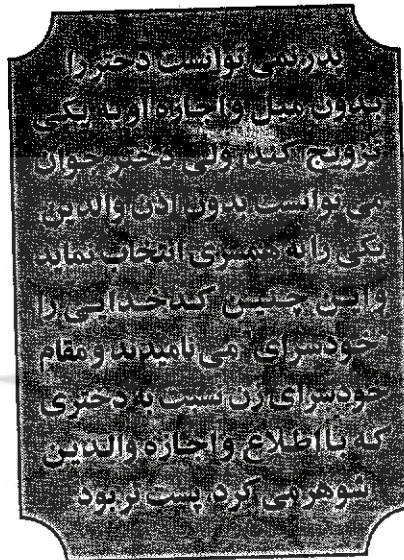 پدر نمی توانست دختر را
بدون میل و اجازه او به یکی
تزویج کند، ولی دختر جوان
می توانست بدون اذن والدین
یکی را به همسری انتخاب نماید
و این چنین کدخدایی را
خودسرای می نامیدند و مقام
خودسرای زن نسبت به دختری
که با اطلاع و اجازه والدین
شوهر می کرد، پست تر بود.